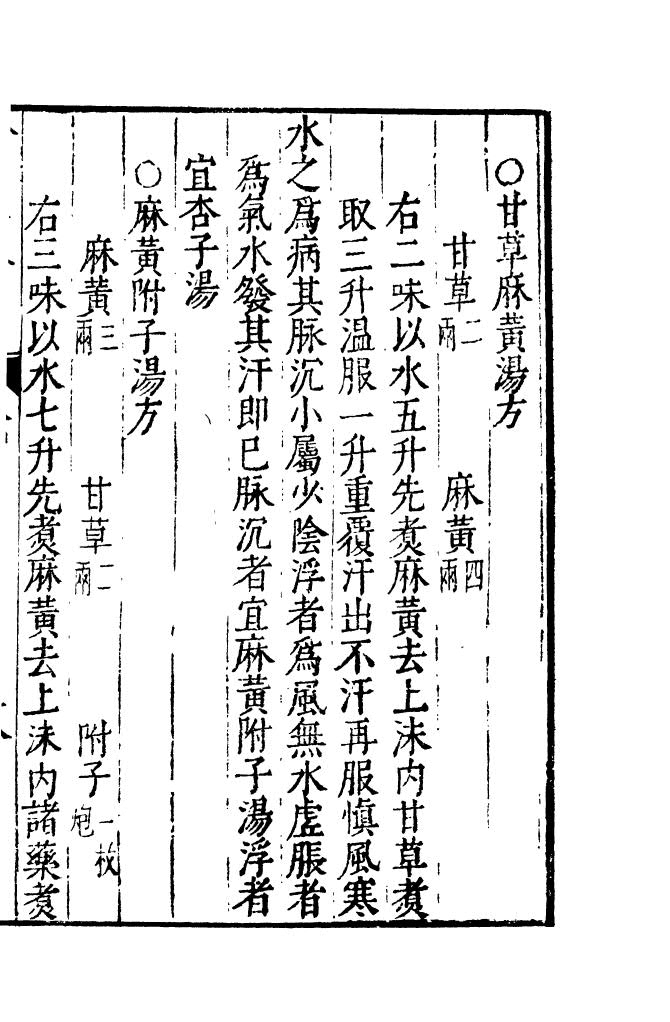 ○甘草麻黃湯方
甘草二兩　麻黃四兩
右二味以水五升先煑麻黃去上沫内甘草煑
取三升温服一升重覆汗出不汗再服慎風寒
水之爲病其脉沉小屬少陰浮者爲風無水虛脹者
爲氣水發其汗即已脉沉者宜麻黃附子湯浮者
宜杏子湯
○麻黃附子湯方
麻黃三兩　甘草二兩　附子一枚炮
右三味以水七升先煑麻黃去上沫内諸藥煑